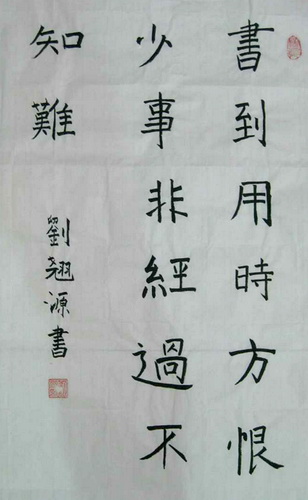 書到用時方恨
少事非經過不
知難
劉翹源書